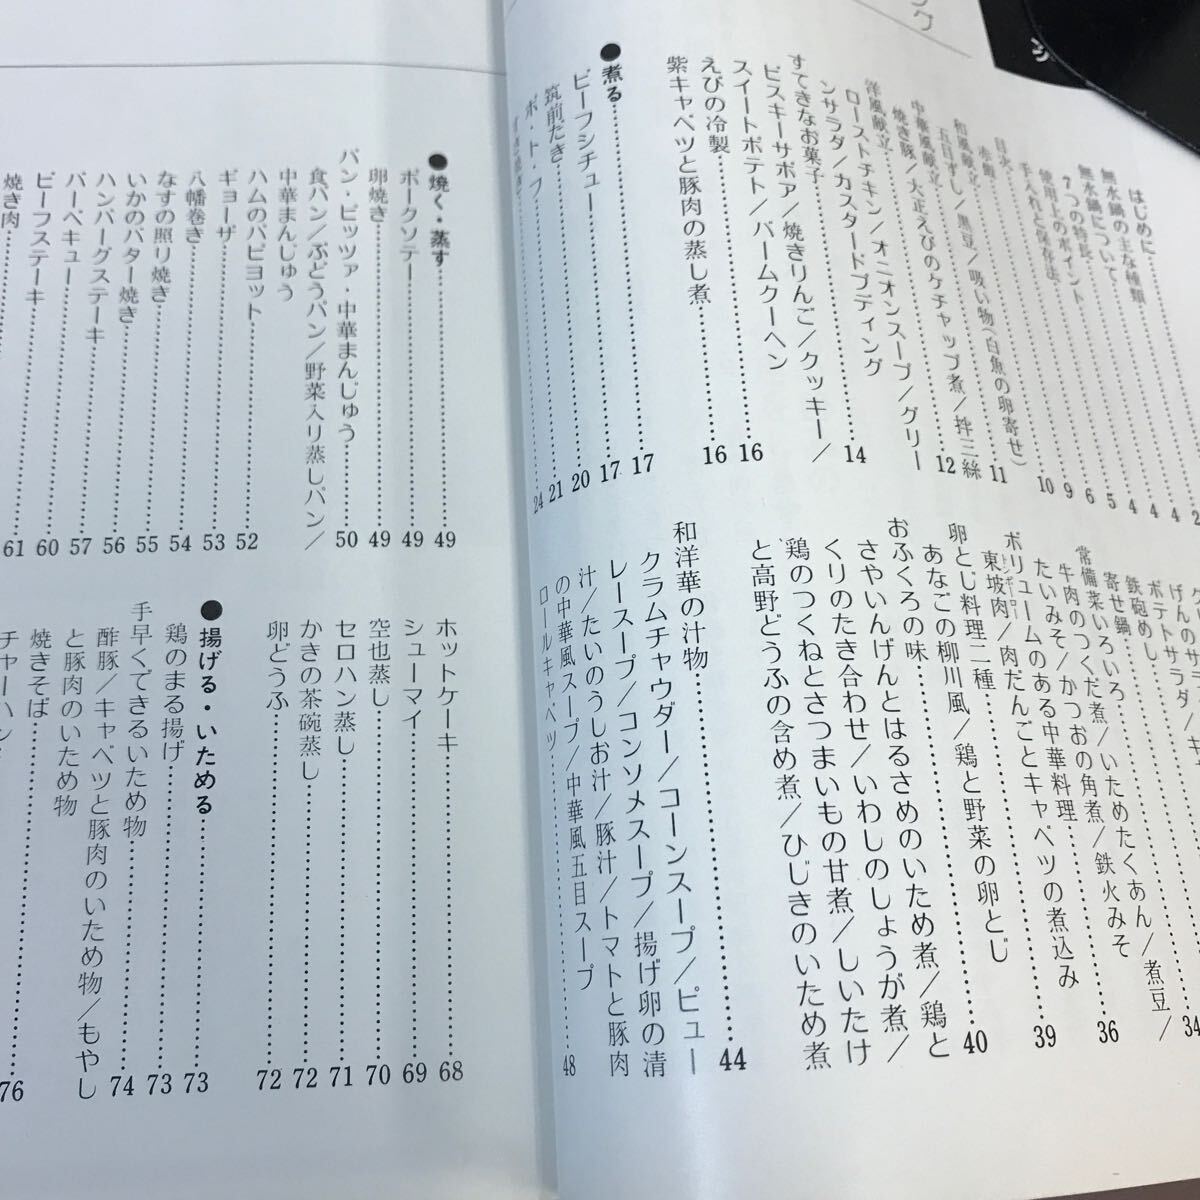 ング
はじめに……2
無水鍋の主な種類……4
無水鍋について……4
7つの特長……5
使用上のポイント……6
手入れと保存法……9
目次……10
赤飯
和風献立……11
五目ずし／黒豆／吸い物(白魚の卵寄せ)
中華風献立……12
焼き豚／大正えびのケチャップ煮／拌三絲
洋風献立……14
ローストチキン／オニオンスープ／グリー
ンサラダ／カスタードプディング
すてきなお菓子
ビスキーサボア／焼きりんご／クッキー／
スイートポテト／バームクーヘン
えびの冷製……16
紫キャベツと豚肉の蒸し煮……16
●煮る……17
ビーフシチュー……17
筑前たき……20
ポ・ト・フ……21
……24
げんのサラ
ポテトサラダ／キャ
鉄砲めし……34
寄せ鍋
常備菜いろいろ……36
牛肉のつくだ煮／いためたくあん／煮豆／
たいみそ／かつおの角煮／鉄火みそ
ボリュームのある中華料理……39
東坡肉／肉だんごとキャベツの煮込み
トンポーロー
卵とじ料理二種……40
あなごの柳川風／鶏と野菜の卵とじ
おふくろの味
さやいんげんとはるさめのいため煮／鶏と
くりのたき合わせ／いわしのしょうが煮／
鶏のつくねとさつまいもの甘煮／しいたけ
と高野どうふの含め煮／ひじきのいため煮
和洋華の汁物……44
クラムチャウダー／コーンスープ／ピュー
レースープ／コンソメスープ／揚げ卵の清
汁／たいのうしお汁／豚汁／トマトと豚肉
の中華風スープ／中華風五目スープ
ロールキャベツ……48
●焼く・蒸す……49
ポークソテー……49
卵焼き……49
パン・ピッツァ・中華まんじゅう……50
食パン／ぶどうパン／野菜入り蒸しパン／
中華まんじゅう
ハムのパピヨット……52
ギョーザ……53
八幡巻き……54
なすの照り焼き……55
いかのバター焼き……56
ハンバーグステーキ……57
バーベキュー……60
ビーフステーキ……61
焼き肉
ホットケーキ……68
シューマイ……69
空也蒸し……70
セロハン蒸し……71
かきの茶碗蒸し……72
卵どうふ……72
●揚げる・いためる……73
鶏のまる揚げ……73
手早くできるいため物……74
酢豚／キャベツと豚肉のいため物／もやし
と豚肉のいため物
焼きそば……76
チャーハン